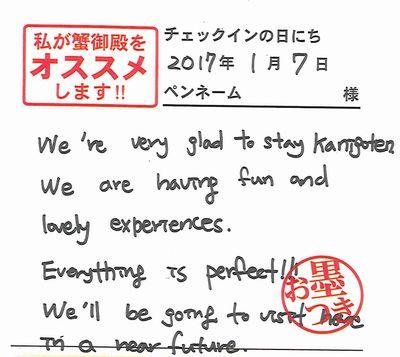 私が蟹御殿を
オススメ
します!!
チェックインの日にち
2017年 1月 7日
ペンネーム 様
We're very glad to stay Kanigoten
We are having fun and
lovely experiences.
Everything is perfect!!!
We'll be going to visit here
in a near future.
お墨つき